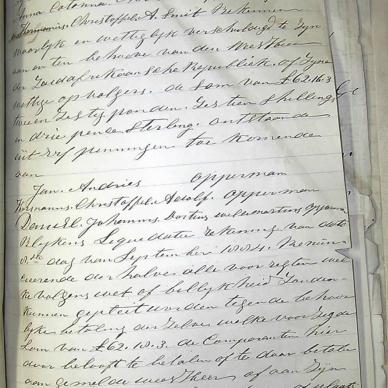 Anna Catonna
Hermanus Christoffel A Smit Bekennen
waarlyk en wettiglyk verschuldigd te zyn
aan en ten behoeve van den Weesheer
der Zuidafrekaansche Republiek of Zyne
wettige opvolgers de Som van £62.16.3
twee en zestig ponden Zestien Shillings
en drie pence Sterling ontstaande
uit erf penningen toe komende
van
Jan Andries Opperman
Hermanus Christoffel Adolf Opperman
Daniel Johannes
blykens Lequidatie rekening van dato
dag van September 1884
der halve alle voor zegten wel
ke volgens wet of bellykheid Zouden
kunnen gepleit worden tegen de behoor
lyke betaling der Zelve welke voorzegde
Som van £62.16.3 de Comparanten hier
door belooft te betalen of te doen betalen
aan gemelde weesheer of aan Zyn